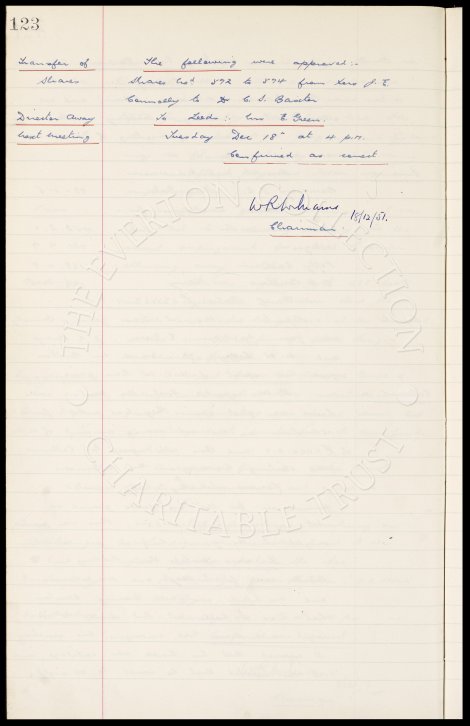 123
Transfer of Shares
The following were approved:-
Shares Nos 572 to 574 from Exors J. E.
Connolly to Dr C. S. Baxter
Director Away
To Leeds:- Mr E Green.
Next Meeting
Tuesday Dec 18th at 4 p.m.
Confirmed as correct
W R Williams 18/12/51.
Chairman.
THE EVERTON COLLECTION
CHARITABLE TRUST